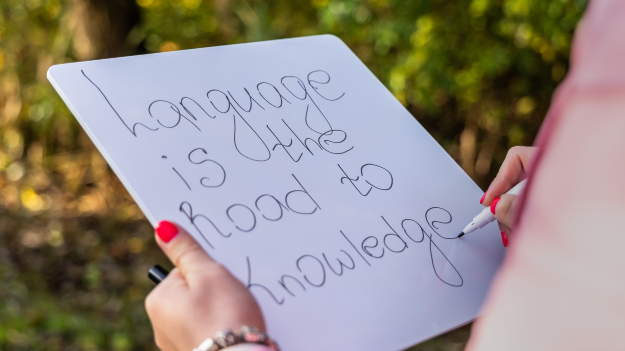 Language
is the
Road to
Knowledge